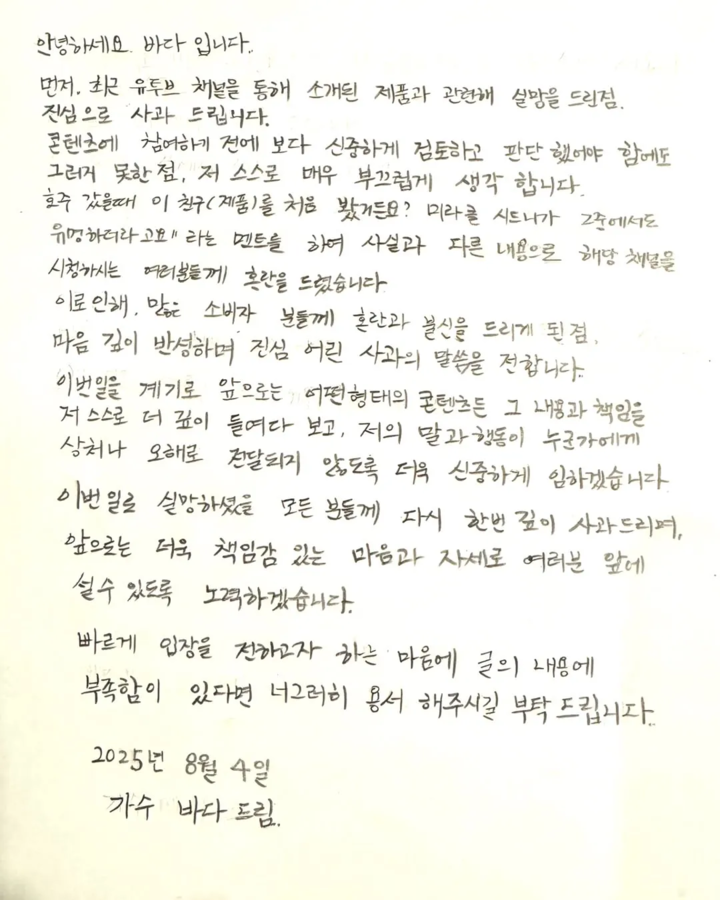 안녕하세요. 바다 입니다.
먼저, 최근 유투브 채널을 통해 소개된 제품과 관련해 실망을 드린점.
진심으로 사과 드립니다.
콘텐츠에 참여하기 전에 보다 신중하게 검토하고 판단 했어야 함에도
그러지 못한 점, 저 스스로 매우 부끄럽게 생각 합니다.
호주 갔을때 이 친구(제품)를 처음 봤거든요? 미라클 시드니가 호주에서도
유명하더라고요" 라는 멘트를 하여 사실과 다른 내용으로 해당 채널을
시청하시는 여러분들께 혼란을 드렸습니다
이로 인해, 많은 소비자 분들께 혼란과 불신을 드리게 된 점,
마음 깊이 반성하며 진심 어린 사과의 말씀을 전합니다.
이번일을 계기로 앞으로는 어떤형태의 콘텐츠든 그 내용과 책임을
저 스스로 더 깊이 들여다 보고, 저의 말과 행동이 누군가에게
상처나 오해로 전달되지 않도록 더욱 신중하게 임하겠습니다
이번 일로 실망하셨을 모든 분들께 다시 한번 깊이 사과드리며,
앞으로는 더욱 책임감 있는 마음과 자세로 여러분 앞에
설 수 있도록 노력하겠습니다.
빠르게 입장을 전하고자 하는 마음에 글의 내용에
부족함이 있다면 너그러히 용서 해주시길 부탁 드립니다.
2025년 8월 4일
가수 바다 드림.